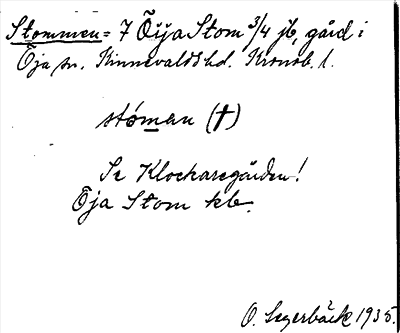 Stommen = 7 Öija Stom 3/4 jb, gård i
Öja sn. Kinnevalds hd. Kronob. l.
stómen (†)
Se Klockaregården!
Öja Stom kb.
O. Segerbäck 1935.